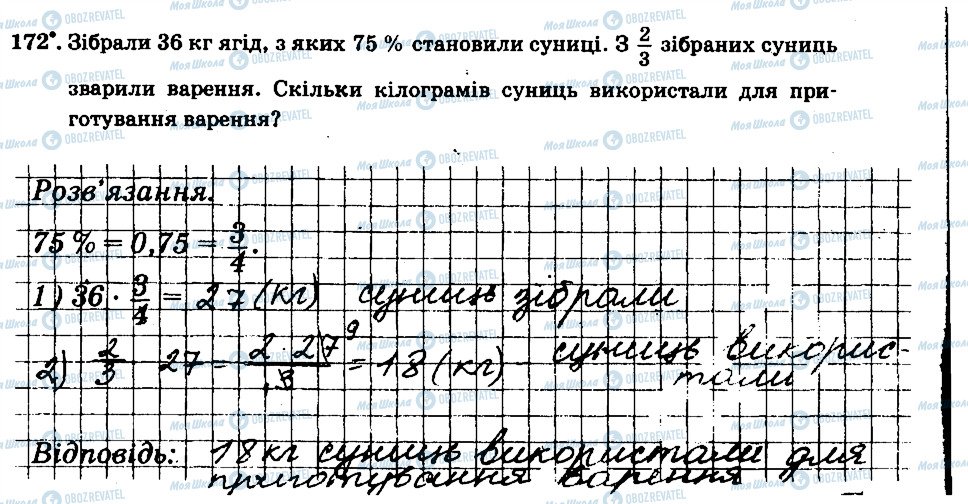 172°. Зібрали 36 кг ягід, з яких 75 % становили суниці. З 2/3 зібраних суниць
зварили варення. Скільки кілограмів суниць використали для при-
готування варення?
Розв'язання.
75 % = 0,75 = 3/4.
1) 36 · 3/4 = 27 (кг) суниць зібрали
2) 2/3 27 = 2 · 27 9 / 3 = 18 (кг) суниць використали
Відповідь: 18 кг суниць використали для
приготування варення